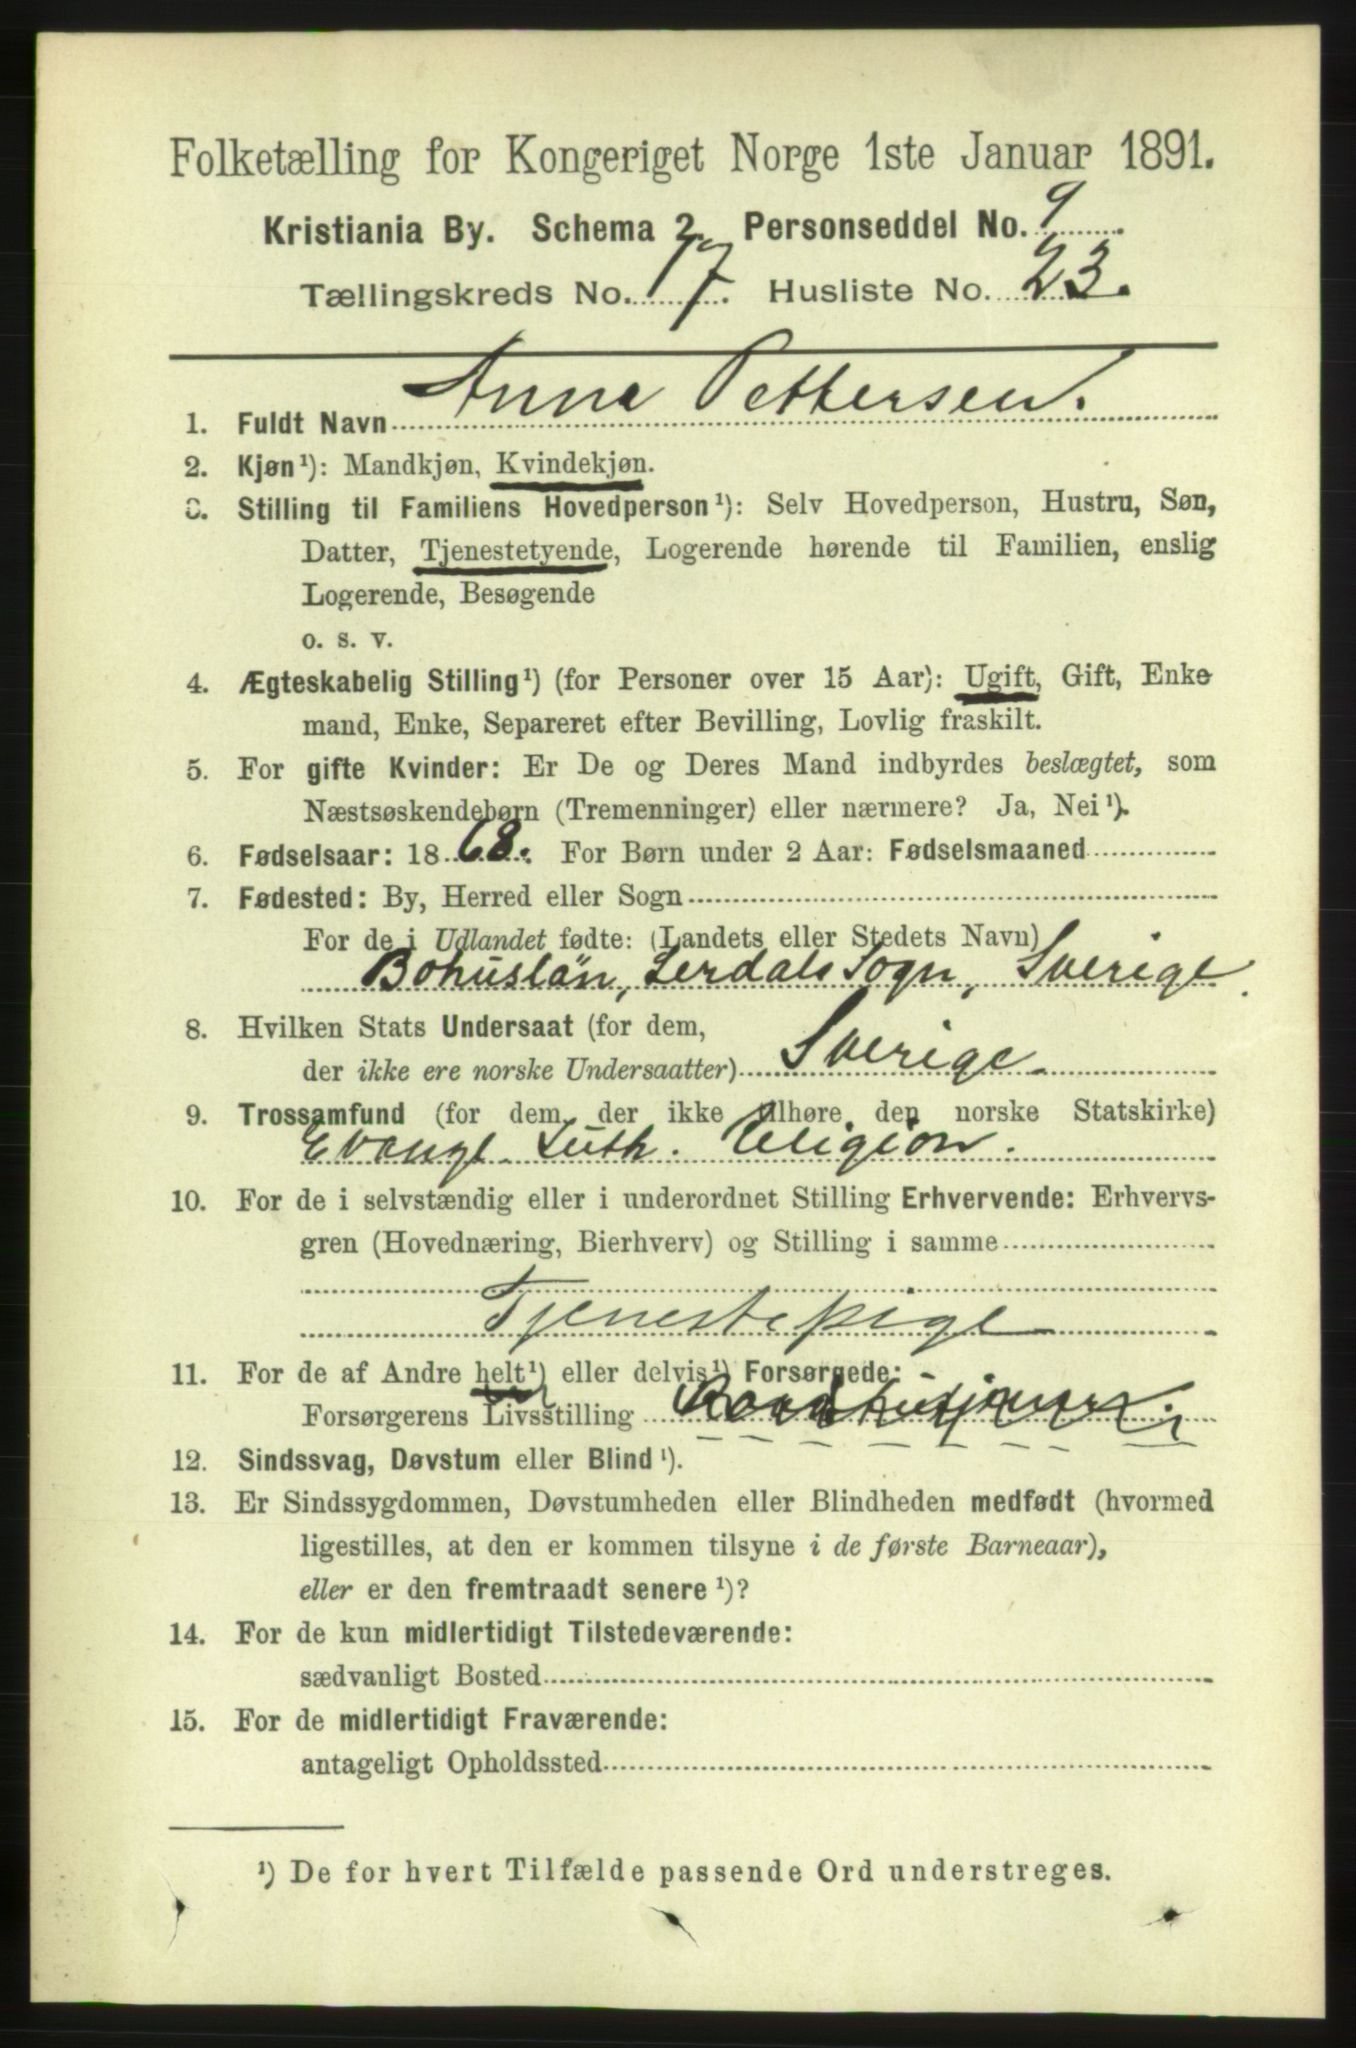 Folketælling for Kongeriget Norge 1ste Januar 1891.
Kristiania By. Schema 2. Personseddel No. 9
Tællingskreds No. 17. Husliste No. 23.
1. Fuldt Navn Anna Pettersen.
2. Kjøn¹): Mandkjøn, Kvindekjøn.
3. Stilling til Familiens Hovedperson¹): Selv Hovedperson, Hustru, Søn,
Datter, Tjenestetyende, Logerende hørende til Familien, enslig
Logerende, Besøgende
o. s. v.
4. Ægteskabelig Stilling¹) (for Personer over 15 Aar): Ugift, Gift, Enke-
mand, Enke, Separeret efter Bevilling, Lovlig fraskilt.
5. For gifte Kvinder: Er De og Deres Mand indbyrdes beslægtet, som
Næstsøskendebørn (Tremenninger) eller nærmere? Ja, Nei¹).
6. Fødselsaar: 1868. For Børn under 2 Aar: Fødselsmaaned
7. Fødested: By, Herred eller Sogn
For de i Udlandet fødte: (Landets eller Stedets Navn)
Bohuslän, Lerdals Sogn, Sverige.
8. Hvilken Stats Undersaat (for dem,
der ikke ere norske Undersaatter) Sverige
9. Trossamfund (for dem, der ikke tilhøre den norske Statskirke)
Evangl. Luth. Religion.
10. For de i selvstændig eller i underordnet Stilling Erhvervende: Erhvervs-
gren (Hovednæring, Bierhverv) og Stilling i samme
Tjenestepige
11. For de af Andre helt¹) eller delvis¹) Forsørgede:
Forsørgerens Livsstilling
12. Sindssvag, Døvstum eller Blind¹).
13. Er Sindssygdommen, Døvstumheden eller Blindheden medfødt (hvormed
ligestilles, at den er kommen tilsyne i de første Barneaar),
eller er den fremtraadt senere¹)?
14. For de kun midlertidigt Tilstedeværende:
sædvanligt Bosted
15. For de midlertidigt Fraværende:
antageligt Opholdssted
¹) De for hvert Tilfælde passende Ord understreges.